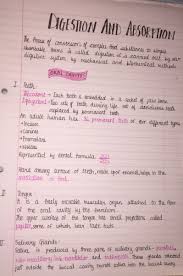 DIGESTION AND ABSORPTION
The Process of conversion of complex food substances to simple
absorbable forms is called digestion and is carried out by our
digestive system by mechanical and biochemical methods
ORAL CAVITY
I. Teeth
Thecodont - Each tooth is embedded in a socket of jaw bone
Diphyodont - Two sets of teeth during life, set of deciduous teeth
replaced by permanent teeth
An adult human has 32 permanent teeth of four different types
• Incisors
• Canines
• Premolars
• Molars
Represented by dental formula
Hard chewing surface of teeth, made up of enamel, helps in the
mastication of food.
II. Tongue
It is a freely movable muscular organ attached to the floor
of the oral cavity by the frenulum.
The upper surface of the tongue has small projections called
papillae, some of which bear taste buds.
III. Salivary Glands
Saliva is produced by three pairs of salivary glands - parotids,
sub-maxillary/sub-mandibular and sublinguals. These glands situated
just outside the buccal cavity secrete salivary juice into the buccal cavity